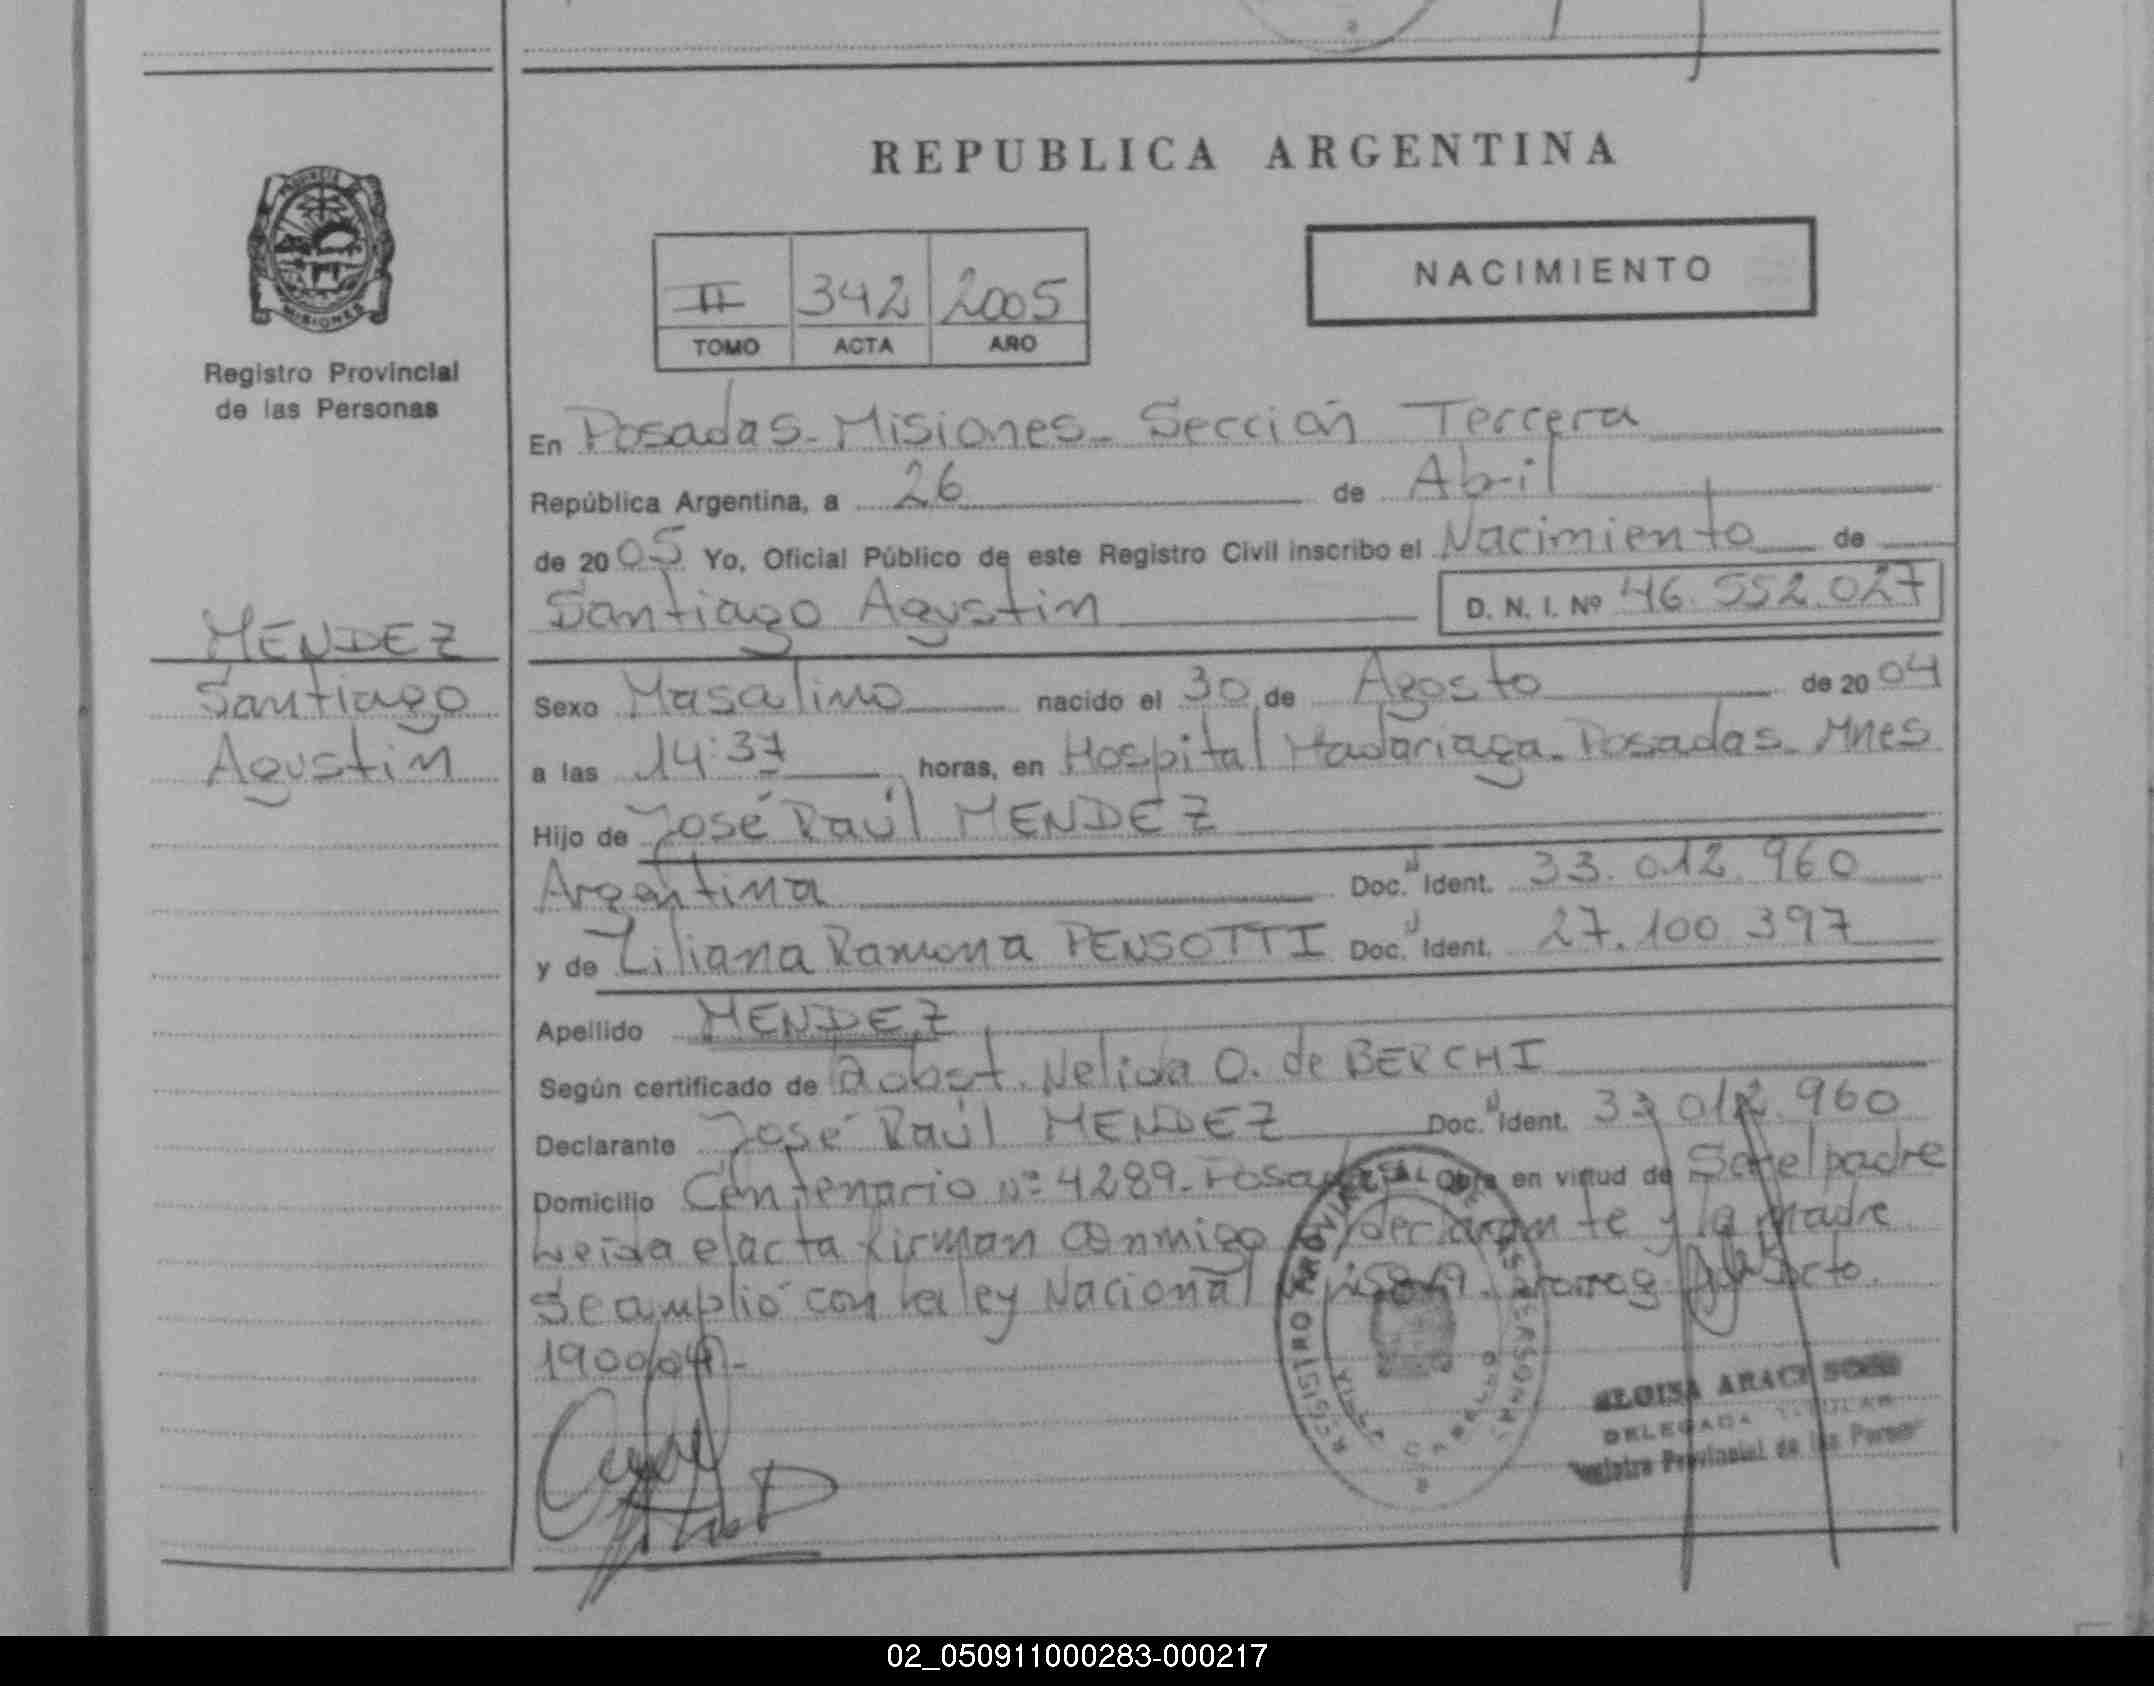 REPUBLICA ARGENTINA
PROVINCIA DE MISIONES
Registro Provincial
de las Personas
II 342 2005
TOMO ACTA AÑO
NACIMIENTO
En Posadas - Misiones - Sección Tercera
República Argentina, a 26 de Abril
de 2005 Yo, Oficial Público de este Registro Civil inscribo el Nacimiento de
Santiago Agustin D. N. I. Nº 46.552.027
MENDEZ
Santiago
Agustin
Sexo Masculino nacido el 30 de Agosto de 2004
a las 14:37 horas, en Hospital Madariaga - Posadas - Mnes
Hijo de José Raúl MENDEZ
Argentina Doc. Ident. 33.012.960
y de Liliana Ramona PENSOTTI Doc. Ident. 27.100.397
Apellido MENDEZ
Según certificado de Obst. Nelida O. de BERCHI
Declarante José Raúl MENDEZ Doc. Ident. 33.012.960
Domicilio Centenario Nº 4289 - Posadas Obra en virtud de Ser el padre
Leida el acta firman conmigo declarante y la madre
Se amplió con la ley Nacional
ELOISA ARACI
DELEGADA TITULAR
Registro Provincial de las Personas
REGISTRO PROVINCIAL DE LAS PERSONAS
02_050911000283-000217